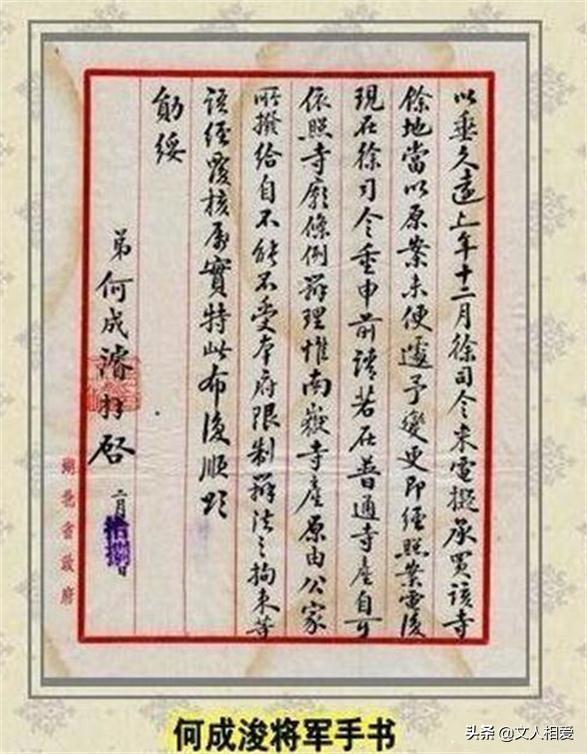 以垂久遠上年十二月徐司令來電擬承買該寺
餘地當以原案未便遽予變更即經照案電復
現在徐司令重申前請若在普通寺產自可
依照寺廟條例辦理惟南嶽寺產原由公家
所撥給自不能不受本府限制辦法之拘束等
該經覆核屬實特此布復順頌
勛綏
弟何成濬拜啓 二月拾捌日
湖北省政府
何成浚将军手书
头条 @文人相爱